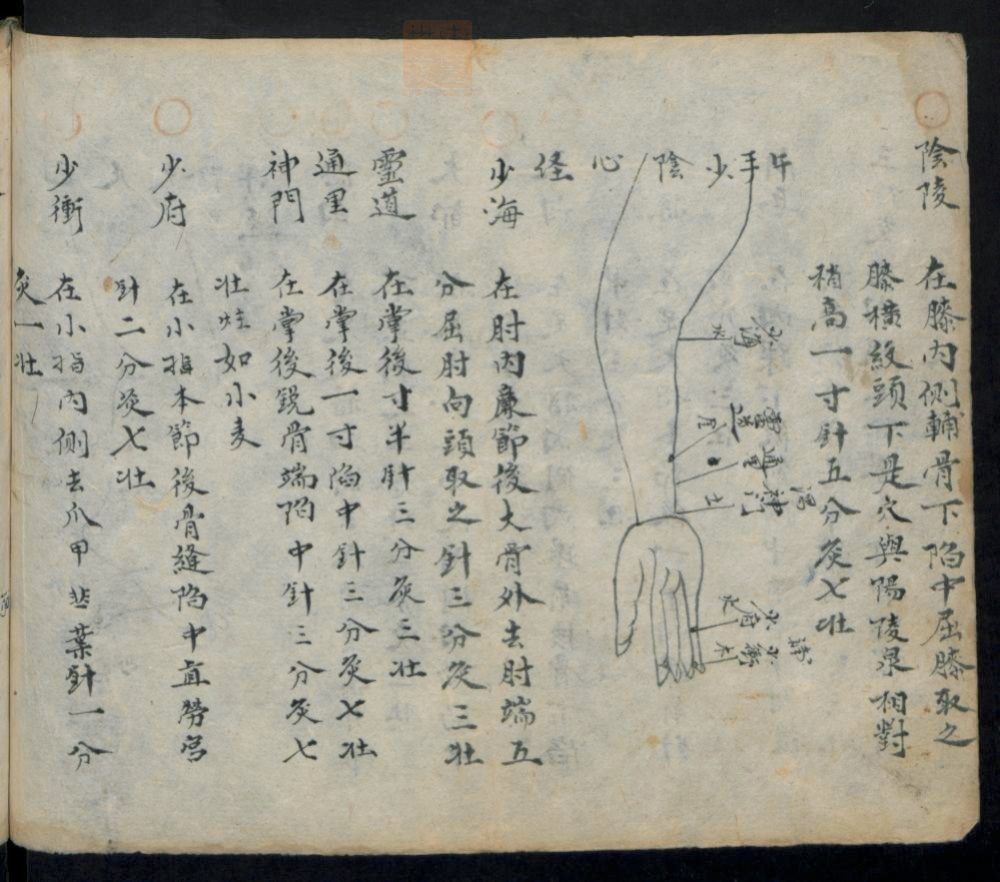 陰陵 在膝內側輔骨下陷中屈膝取之
膝橫紋頭下是穴與陽陵泉相對
稍高一寸針五分灸七壯
午手少陰心経
少海
水
靈道
通里
神門
土
少府
火
少衝
木
少海 在肘內廉節後大骨外去肘端五
分屈肘向頭取之針三分灸三壯
靈道 在掌後寸半針三分灸三壯
通里 在掌後一寸陷中針三分灸七壯
神門 在掌後銳骨端陷中針三分灸七
壯炷如小麦
少府 在小指本節後骨縫陷中直勞宮
針二分灸七壯
少衝 在小指內側去爪甲韭葉針一分
灸一壯